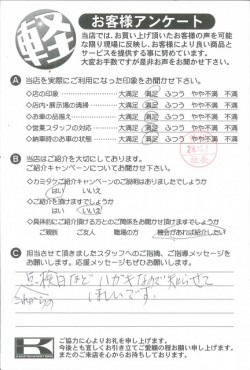 軽
お客様アンケート
当店では、お買い上げ頂いたお客様の声を可能
な限り現場に反映し、お客様により良い商品と
サービスを提供する事に努めています。
大変お手数ですが是非お声をお聞かせ下さい。
A 当店を実際にご利用になった印象をお聞かせ下さい。
◇店の印象 大満足 満足 ふつう やや不満 不満
◇店内・展示場の清掃 大満足 満足 ふつう やや不満 不満
◇お車の品揃え 大満足 満足 ふつう やや不満 不満
◇営業スタッフの対応 大満足 満足 ふつう やや不満 不満
◇納車時のお車の状態 大満足 満足 ふつう やや不満
B 当店はご紹介を大切にしております。
ご紹介キャンペーンについてお聞かせ下さい。
◇カミタウご紹介キャンペーンのご説明はありましたでしょうか
はい いいえ
◇ご紹介を頂けますでしょうか
はい いいえ
◇具体的にご紹介頂ける方とのご関係をお聞かせ頂けますでしょうか
ご親戚 ご友人 職場の方 機会があれば紹介したい
C 担当させて頂きましたスタッフへのご指摘、ご指導メッセージを
お願いします。応援メッセージもぜひお願いします。
点検日など ハガキなどで知らせて
ほしいです。
K
ご協力に心よりお礼を申し上げます。
今後とも宜しくお引き立てご愛顧の程お願い申し上げます。
またのご来店を心からお待ちしております。